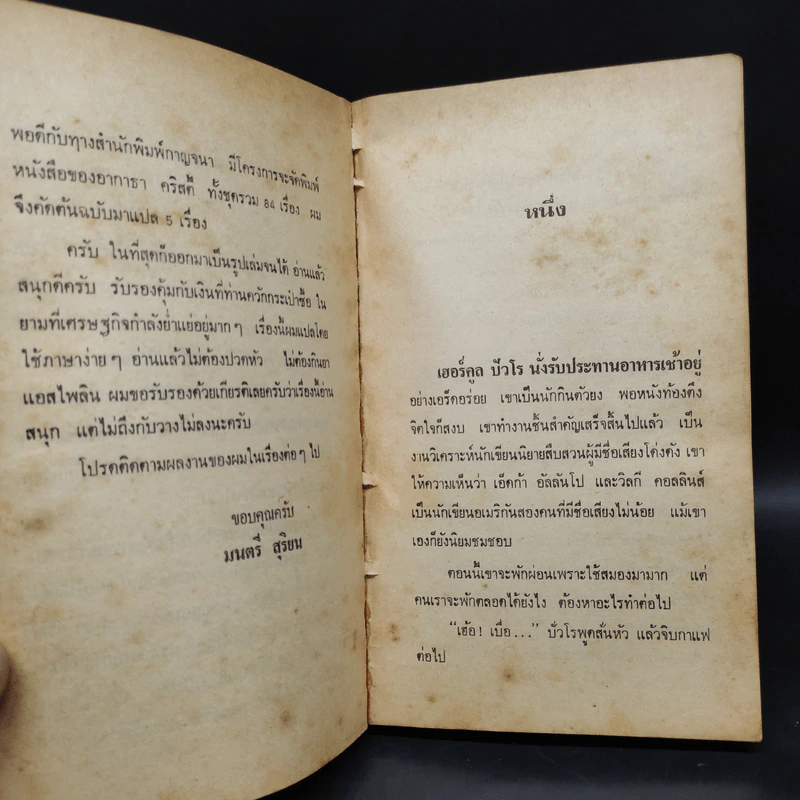 พอดีกับทางสำนักพิมพ์กาญจนา มีโครงการจะจัดพิมพ์
หนังสือของอากาธา คริสตี้ ทั้งชุดรวม 84 เรื่อง ผม
จึงคัดต้นฉบับมาแปล 5 เรื่อง
ครับ ในที่สุดก็ออกมาเป็นรูปเล่มจนได้ อ่านแล้ว
สนุกดีครับ รับรองคุ้มกับเงินที่ท่านควักกระเป๋าซื้อ ใน
ยามที่เศรษฐกิจกำลังย่ำแย่อยู่มากๆ เรื่องนี้ผมแปลโดย
ใช้ภาษาง่ายๆ อ่านแล้วไม่ต้องปวดหัว ไม่ต้องกินยา
แอสไพลิน ผมขอรับรองด้วยเกียรติเลยครับว่าเรื่องนี้อ่าน
สนุก แต่ไม่ถึงกับวางไม่ลงนะครับ
โปรดติดตามผลงานของผมในเรื่องต่อๆ ไป
ขอบคุณครับ
มนตรี สุริยน
หนึ่ง
เฮอร์คูล ปัวโร นั่งรับประทานอาหารเช้าอยู่
อย่างเอร็ดอร่อย เขาเป็นนักกินตัวยง พอหนังท้องตึง
จิตใจก็สงบ เขาทำงานชิ้นสำคัญเสร็จสิ้นไปแล้ว เป็น
งานวิเคราะห์นักเขียนนิยายสืบสวนผู้มีชื่อเสียงโด่งดัง เขา
ให้ความเห็นว่า เอ็ดก้า อัลลันโป และวิลกี คอลลินส์
เป็นนักเขียนอเมริกันสองคนที่มีชื่อเสียงไม่น้อย แม้เขา
เองก็ยังนิยมชมชอบ
ตอนนี้เขาจะพักผ่อนเพราะใช้สมองมามาก แต่
คนเราจะพักตลอดได้ยังไง ต้องหาอะไรทำต่อไป
“เฮ้อ! เบื่อ...” ปัวโรพูดสั่นหัว แล้วจิบกาแฟ
ต่อไป